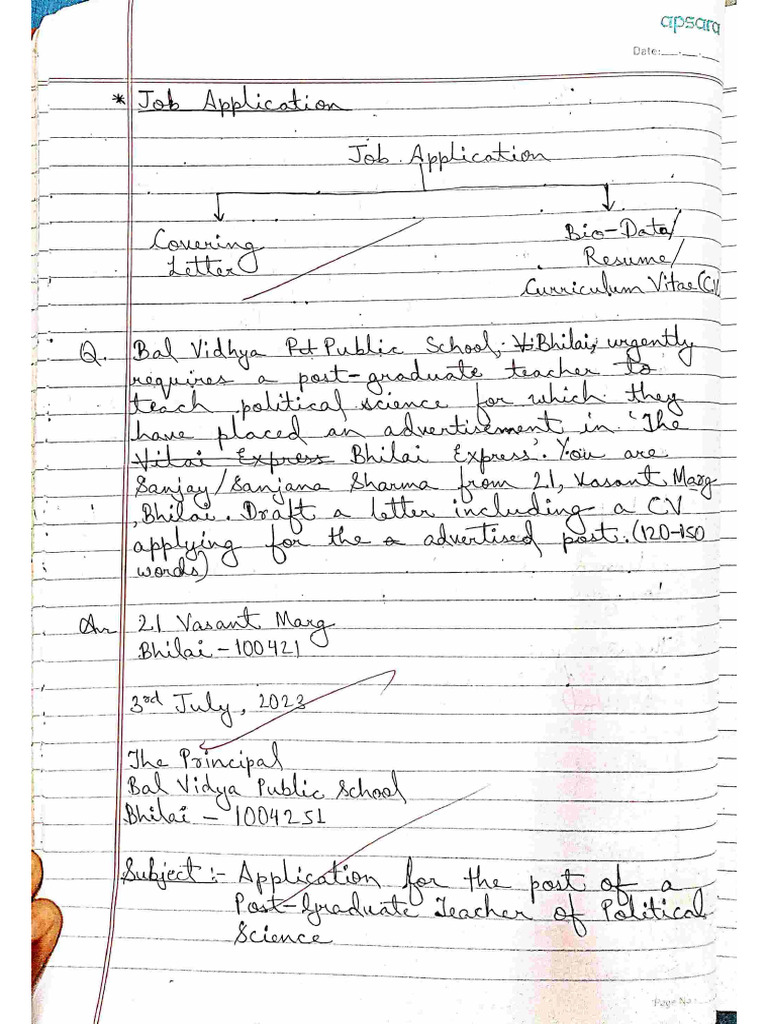 apsara
Date:__.__.__
* Job Application
Job Application
Covering
Letter
Bio-Data/
Resume/
Curriculum Vitae (CV
Q. Bal Vidhya Pct Public School, Vi Bhilai, urgently
requires a post-graduate teacher to
teach political science for which they
have placed an advertisement in 'The
Vilai Express Bhilai Express'. You are
Sanjay/Sanjana Sharma from 21, Vasant Marg
, Bhilai. Draft a letter including a CV
applying for the a advertised post. (120-150
words)
Ans 21 Vasant Marg
Bhilai - 100421
3rd July, 2023
The Principal
Bal Vidya Public School
Bhilai - 1004251
Subject :- Application for the post of a
Post-Graduate Teacher of Political
Science
Page No